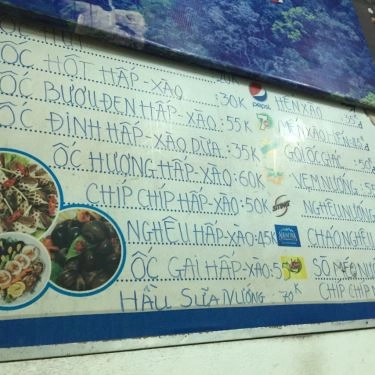 ỐC HÚT
ỐC HỘT HẤP-XÀO : 30K
ỐC BƯƠU ĐEN HẤP-XÀO : 55K
ỐC ĐỈNH HẤP-XÀO DỪA : 35K
ỐC HƯƠNG HẤP-XÀO : 60K
CHÍP CHÍP HẤP-XÀO : 50K
NGHÊU HẤP-XÀO : 45K
ỐC GAI HẤP-XÀO : 5
HÀU SỮA NƯỚNG 70K
pepsi
7
STING
AQUAFINA
HẾN XÀO
HẾN XÀO
GỎI ỐC GIÁC : 50
VẸM NƯỚNG : 5
NGHÊU NƯỚNG
CHÁO NGHÊU
SÒ MÉO NƯỚ
CHÍP CHÍP N